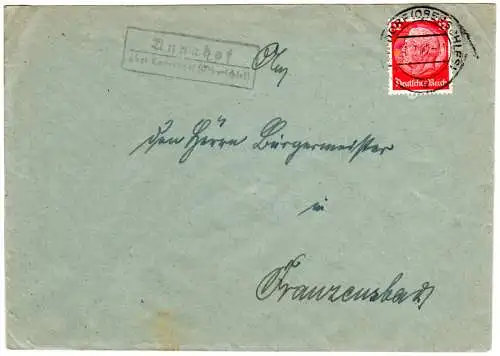 Annahof
über (Oberschles)
DORF (OBERSCHLES)
Deutsches Reich
An
den Herrn Bürgermeister
in
Franzensbad